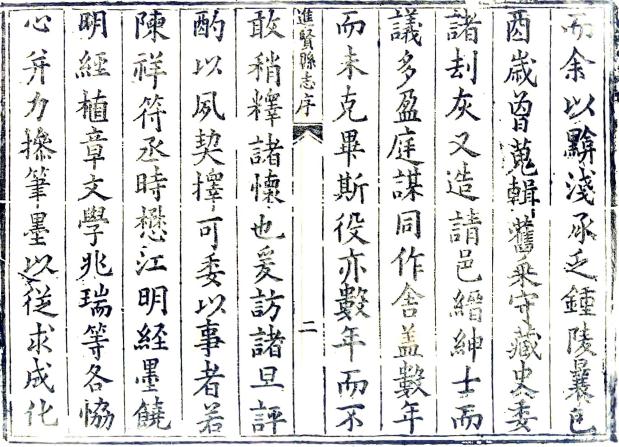 而余以黭淺承乏鍾陵曩邑
酉歲曾蒐輯舊乘守藏史委
諸刦灰又造請邑縉紳士而
議多盈庭謀同作舍盖數年
而未克畢斯役亦數年而不
進賢縣志序
二
敢稍釋諸懷也爰訪諸旦評
酌以夙契擇可委以事者若
陳祥符丞時懋江明經墨饒
明經植章文學兆瑞等各恊
心并力摻筆墨以從求成化